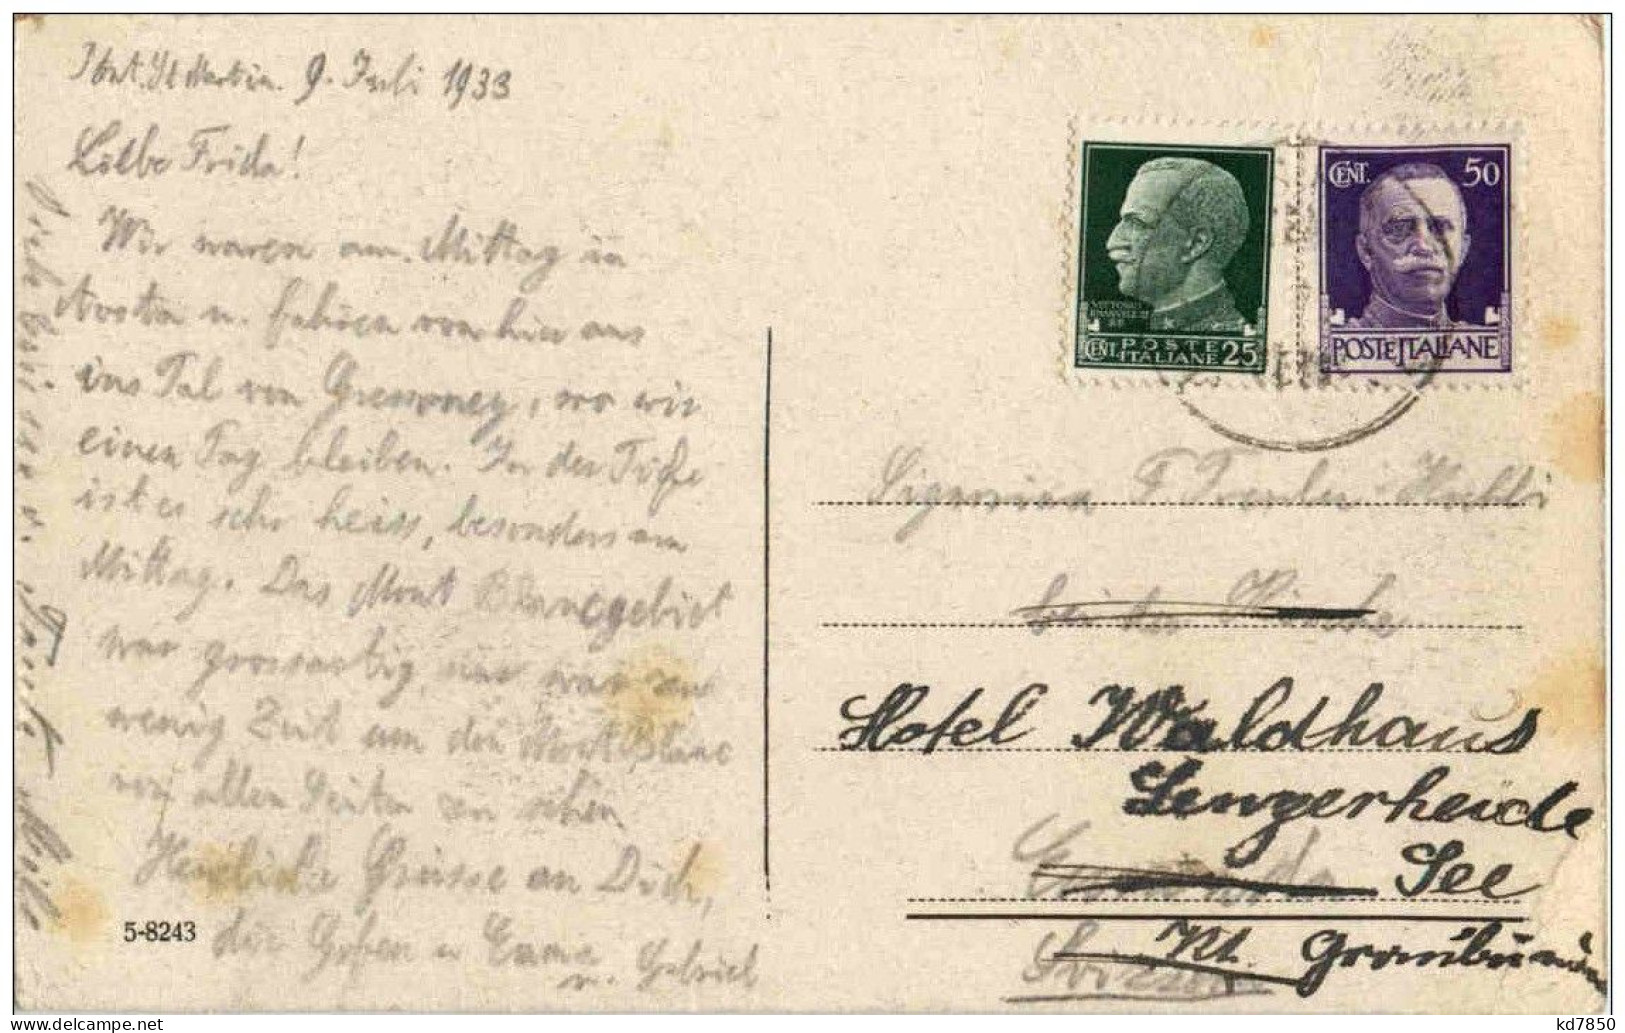 Pont. St Martin. 9. Juli 1933
Liebe Frida!
Wir waren am Mittag in
Aosta u. fahren von hier aus
ins Tal von Gressoney, wo wir
einen Tag bleiben. In der Tiefe
ist es sehr heiss, besonders am
Mittag. Das Mont Blancgebiet
war grossartig, nur war zu
wenig Zeit um den Montblanc
von allen Seiten zu sehen
Herzliche Grüsse an Dich,
u. Gabriel
5-8243
CENT. POSTE ITALIANE 25
CENT. 50
POSTE ITALIANE
Signorina F
bei der Kirche
Hotel Waldhaus
Lenzerheide
See
Kt. Graubünden
Svizzera
kd7850